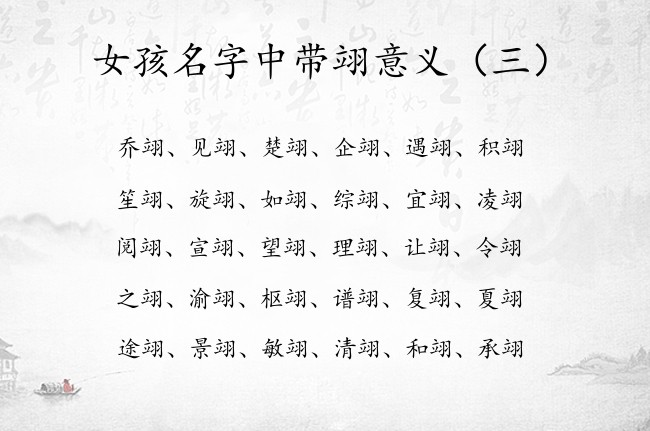 女孩名字中带翊意义（三）
乔翊、见翊、楚翊、企翊、遇翊、积翊
笙翊、旋翊、如翊、综翊、宜翊、凌翊
阅翊、宣翊、望翊、理翊、让翊、令翊
之翊、渝翊、枢翊、谱翊、复翊、夏翊
途翊、景翊、敏翊、清翊、和翊、承翊